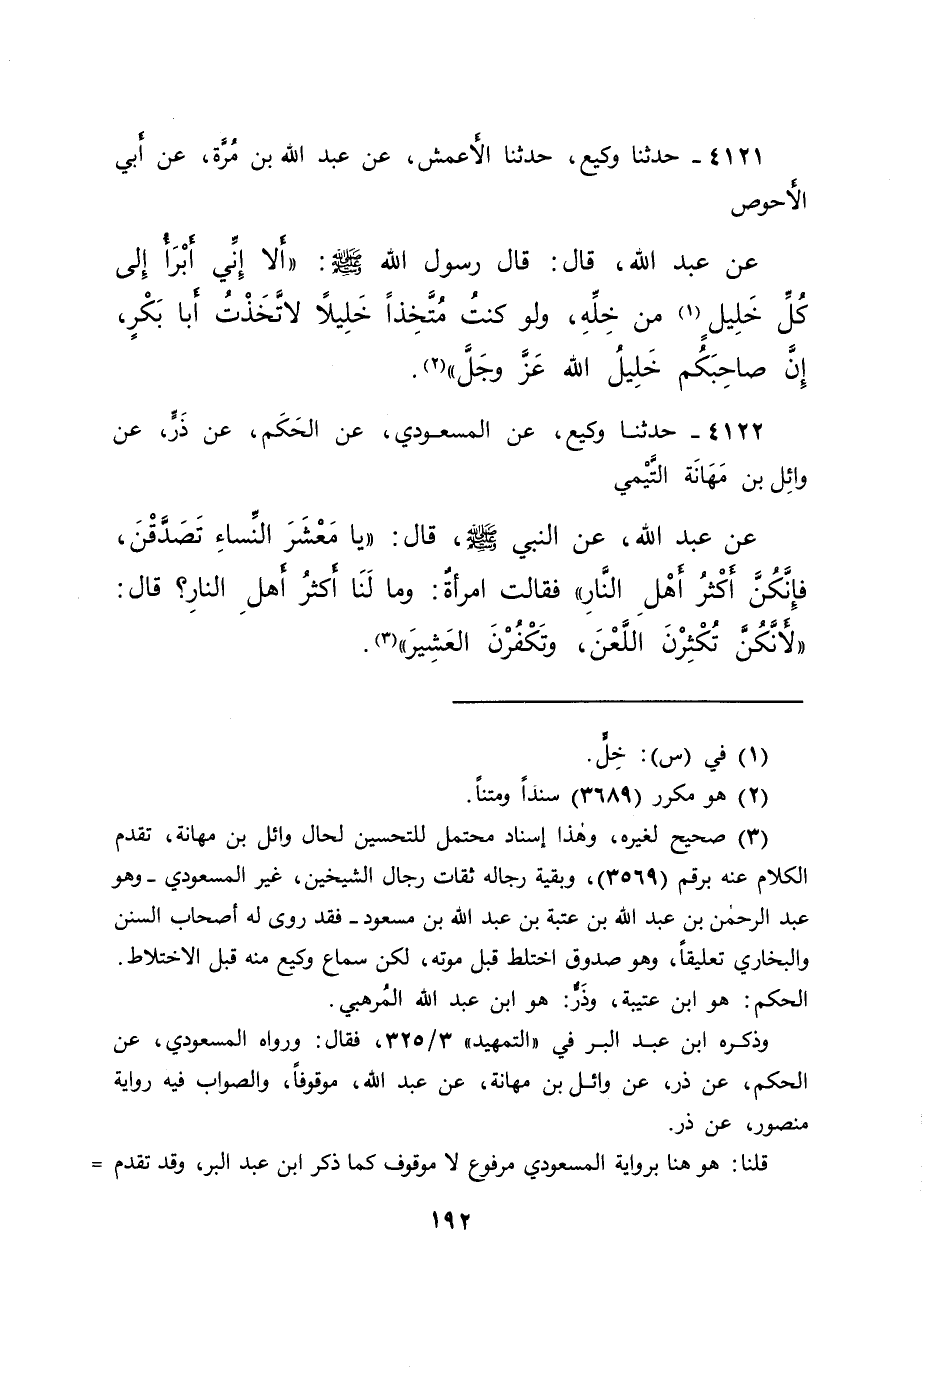 ٤١٢١ ـ حدثنا وكيع، حدثنا الأعمش، عن عبد الله بن مُرَّة، عن أبي
الأحوص
عن عبد الله، قال: قال رسول الله ﷺ: «أَلا إِنِّي أَبْرَأُ إلى
كُلِّ خَلِيلٍ(١) من خِلِّهِ، ولو كنتُ مُتَّخِذاً خَلِيلًا لاتَّخَذْتُ أَبا بَكْرٍ،
إِنَّ صاحِبَكُم خَلِيلُ الله عَزَّ وجَلَّ»(٢).
٤١٢٢ ـ حدثنا وكيع، عن المسعودي، عن الحَكَم، عن ذَرٍّ، عن
وائِل بن مَهَانَة التَّيْمي
عن عبد الله، عن النبي ﷺ، قال: «يا مَعْشَرَ النِّساءِ تَصَدَّقْنَ،
فإِنَّكُنَّ أَكْثَرُ أَهْلِ النَّارِ» فقالت امرأةٌ: وما لَنَا أكثرُ أهلِ النارِ؟ قال:
«لأَنَّكُنَّ تُكْثِرْنَ اللَّعْنَ، وتَكْفُرْنَ العَشِيرَ»(٣).
(١) في (س): خِلٍّ.
(٢) هو مكرر (٣٦٨٩) سنداً ومتناً.
(٣) صحيح لغيره، وهٰذا إسناد محتمل للتحسين لحال وائل بن مهانة، تقدم
الكلام عنه برقم (٣٥٦٩)، وبقية رجاله ثقات رجال الشيخين، غير المسعودي ـ وهو
عبد الرحمٰن بن عبد الله بن عتبة بن عبد الله بن مسعود ـ فقد روى له أصحاب السنن
والبخاري تعليقاً، وهو صدوق اختلط قبل موته، لكن سماع وكيع منه قبل الاختلاط.
الحكم: هو ابن عتيبة، وذَرٌّ: هو ابن عبد الله المُرهبي.
وذكره ابن عبد البر في «التمهيد» ٣٢٥/٣، فقال: ورواه المسعودي، عن
الحكم، عن ذر، عن وائل بن مهانة، عن عبد الله، موقوفاً، والصواب فيه رواية
منصور، عن ذر.
قلنا: هو هنا برواية المسعودي مرفوع لا موقوف كما ذكر ابن عبد البر، وقد تقدم =
١٩٢